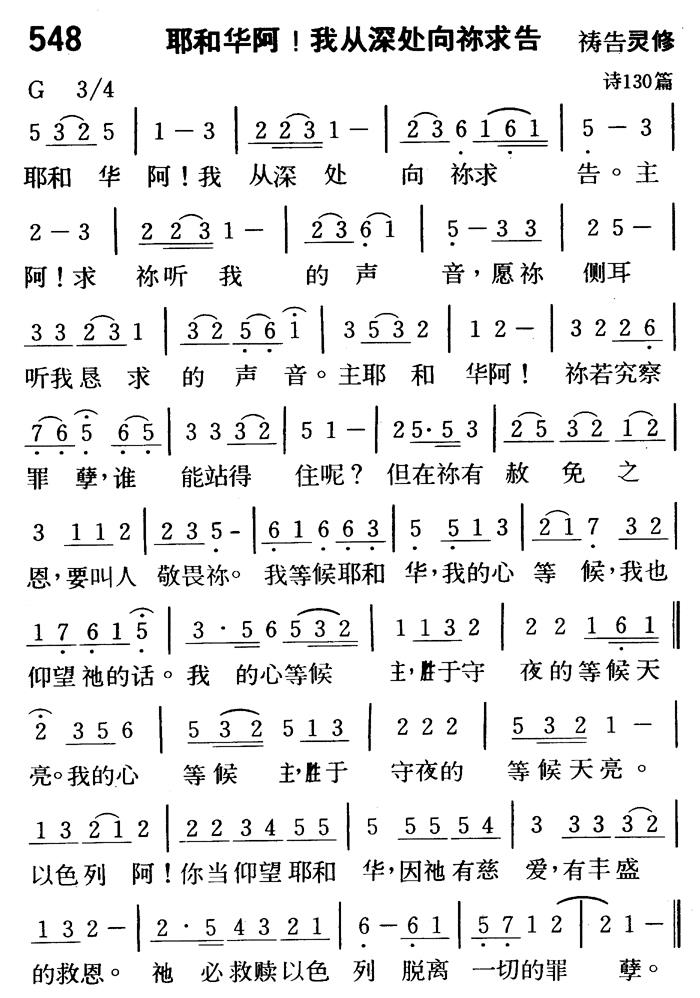 548 耶和华阿！我从深处向祢求告 祷告灵修
G 3/4 诗130篇
5 3 2 5 | 1 — 3 | 2 2 3 1 — | 2 3 6 1 6 1 | 5 — 3 |
耶和 华 阿！我 从深 处 向 祢求 告。主
2 — 3 | 2 2 3 1 — | 2 3 6 1 | 5 — 3 3 | 2 5 — |
阿！求 祢听 我 的 声 音，愿祢 侧耳
3 3 2 3 1 | 3 2 5 6 1 | 3 5 3 2 | 1 2 — | 3 2 2 6 |
听我恳 求 的 声 音。主耶 和 华阿！ 祢若究察
7 6 5 6 5 | 3 3 3 2 | 5 1 — | 2 5· 5 3 | 2 5 3 2 1 2 |
罪 孽，谁 能站得 住呢？ 但在祢有 赦 免 之
3 1 1 2 | 2 3 5 - | 6 1 6 6 3 | 5 5 1 3 | 2 1 7 3 2 |
恩，要叫人 敬畏祢。 我等候耶和 华，我的心 等 候，我也
1 7 6 1 5 | 3 · 5 6 5 3 2 | 1 1 3 2 | 2 2 1 6 1 ‖
仰望祂的话。我 的心等候 主，胜于守 夜的等候天
2 3 5 6 | 5 3 2 5 1 3 | 2 2 2 | 5 3 2 1 — |
亮。我的心 等 候 主，胜于 守夜的 等候天亮。
1 3 2 1 2 | 2 2 3 4 5 5 | 5 5 5 5 4 | 3 3 3 3 2 |
以色列 阿！你当仰望耶和 华，因祂有慈 爱，有丰盛
1 3 2 — | 2 · 5 4 3 2 1 | 6 — 6 1 | 5 7 1 2 | 2 1 — ‖
的救恩。 祂 必救赎以色 列 脱离 一切的罪 孽。